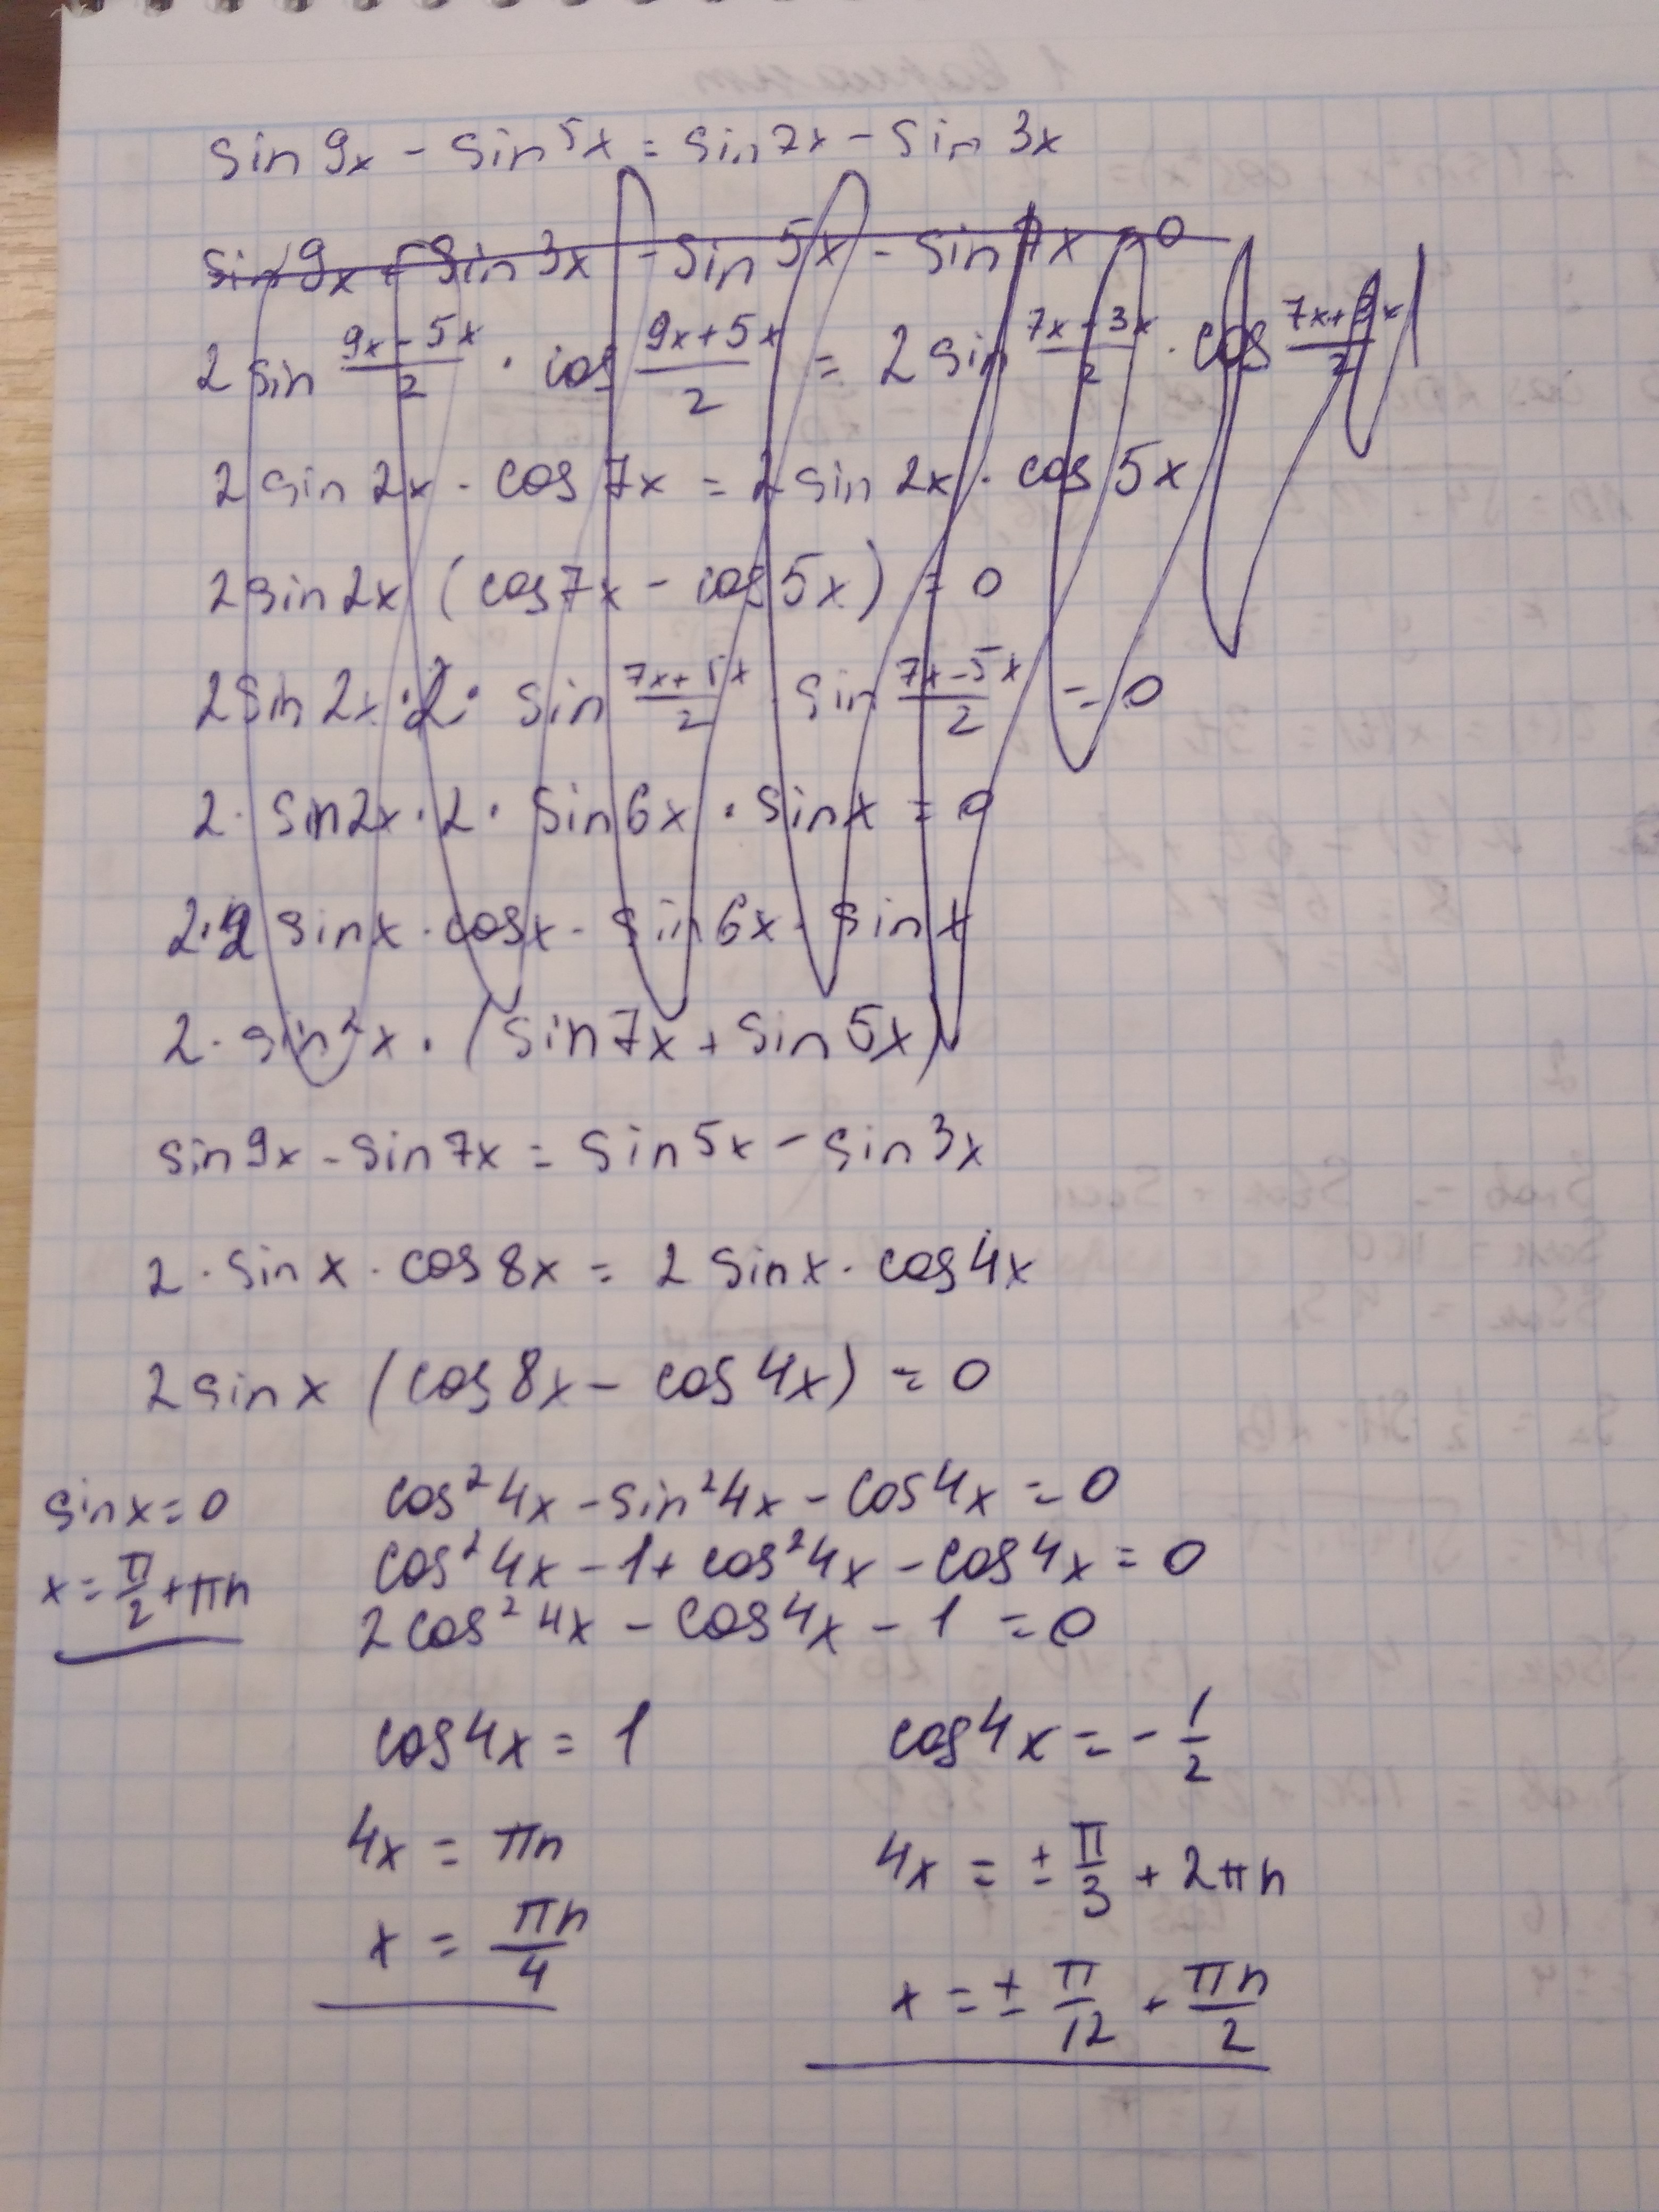 sin 9x - sin 5x = sin 7x - sin 3x
sin 9x + sin 3x - sin 5x - sin 7x = 0
2 sin (9x - 5x)/2 · cos (9x + 5x)/2 = 2 sin (7x - 3x)/2 · cos (7x + 3x)/2
2 sin 2x · cos 7x = 2 sin 2x · cos 5x
2 sin 2x (cos 7x - cos 5x) = 0
2 sin 2x · 2 · sin (7x + 5x)/2 · sin (7x - 5x)/2 = 0
2 · sin 2x · 2 · sin 6x · sin x = 0
2 · 2 sin x · cos x · sin 6x · sin x
2 · sin² x · (sin 7x + sin 5x)
sin 9x - sin 7x = sin 5x - sin 3x
2 · sin x · cos 8x = 2 sin x · cos 4x
2 sin x (cos 8x - cos 4x) = 0
sin x = 0
x = π/2 + πn
cos² 4x - sin² 4x - cos 4x = 0
cos² 4x - 1 + cos² 4x - cos 4x = 0
2 cos² 4x - cos 4x - 1 = 0
cos 4x = 1
4x = πn
x = πn/4
cos 4x = - 1/2
4x = ± π/3 + 2πn
x = ± π/12 + πn/2